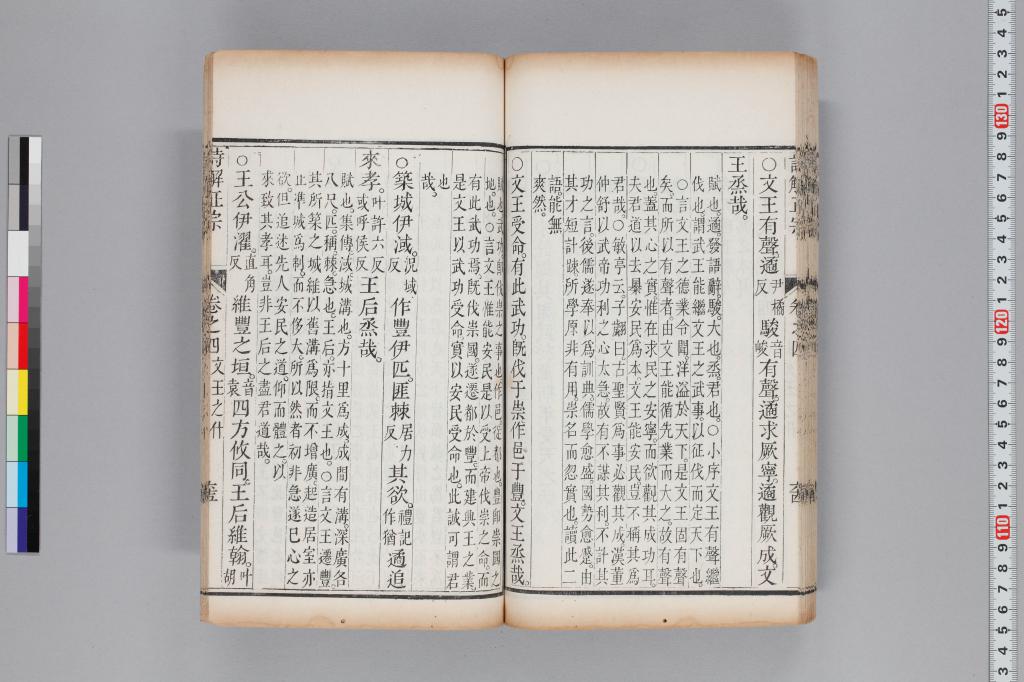 ○文王有聲。遹尹橘反駿音峻有聲。遹求厥寧。遹觀厥成。文
王烝哉。
賦也。遹。發語辭。駿。大也。烝。君也。○小序。文王有聲。繼
伐也。謂武王能繼文王之武事。以征伐而定天下也。
○言文王之德業令聞。洋溢於天下。是文王固有聲
矣。而所以有聲者。由文王能循先業而大之。故有聲
也。蓋其心之實。惟在求民之安寧。而欲觀其成功耳。
夫君道以去暴安民爲本。文王能安民。豈不稱其爲
君哉。○敏亭云。子顓曰。古聖賢爲事。必觀其成。漢董
仲舒以武帝功利之心太急。故有不謀其利。不計其
功之言。後儒遂奉以爲訓典。儒學愈盛。國勢愈蹙。由
其才短計踈。所學原非有用。崇名而忍實也。讀此二
語。能無
爽然。
○文王受命。有此武功。既伐于崇。作邑于豐。文王烝哉。
地也。○言文王惟能安民。是以受上帝伐崇之命。而
有此武功焉。既伐崇國。遂遷都於豐。而建興王之業。
是文王以武功受命。實以安民受命也。此誠可謂君
也
哉。
○築城伊淢。況域反作豐伊匹。匪棘居力反其欲。禮記作猶遹追
來孝。叶許六反或呼侯反王后烝哉。
賦也。集傳。淢。城溝也。方十里爲成。成間有溝。深廣各
八尺。匹。稱。棘。急也。王后。亦指文王也。○言文王遷豐。
其所築之城。維以舊溝爲限。而不增廣。起造居室。亦
止準城爲制。而不侈大。所以然者。初非急遂己心之
欲。但追述先人安民之道。仰而體之。以
來致其孝耳。豈非王后之盡君道哉。
○王公伊濯。直角反維豐之垣。音袁四方攸同。王后維翰。叶胡
詩解正宗 卷之四 文王之什